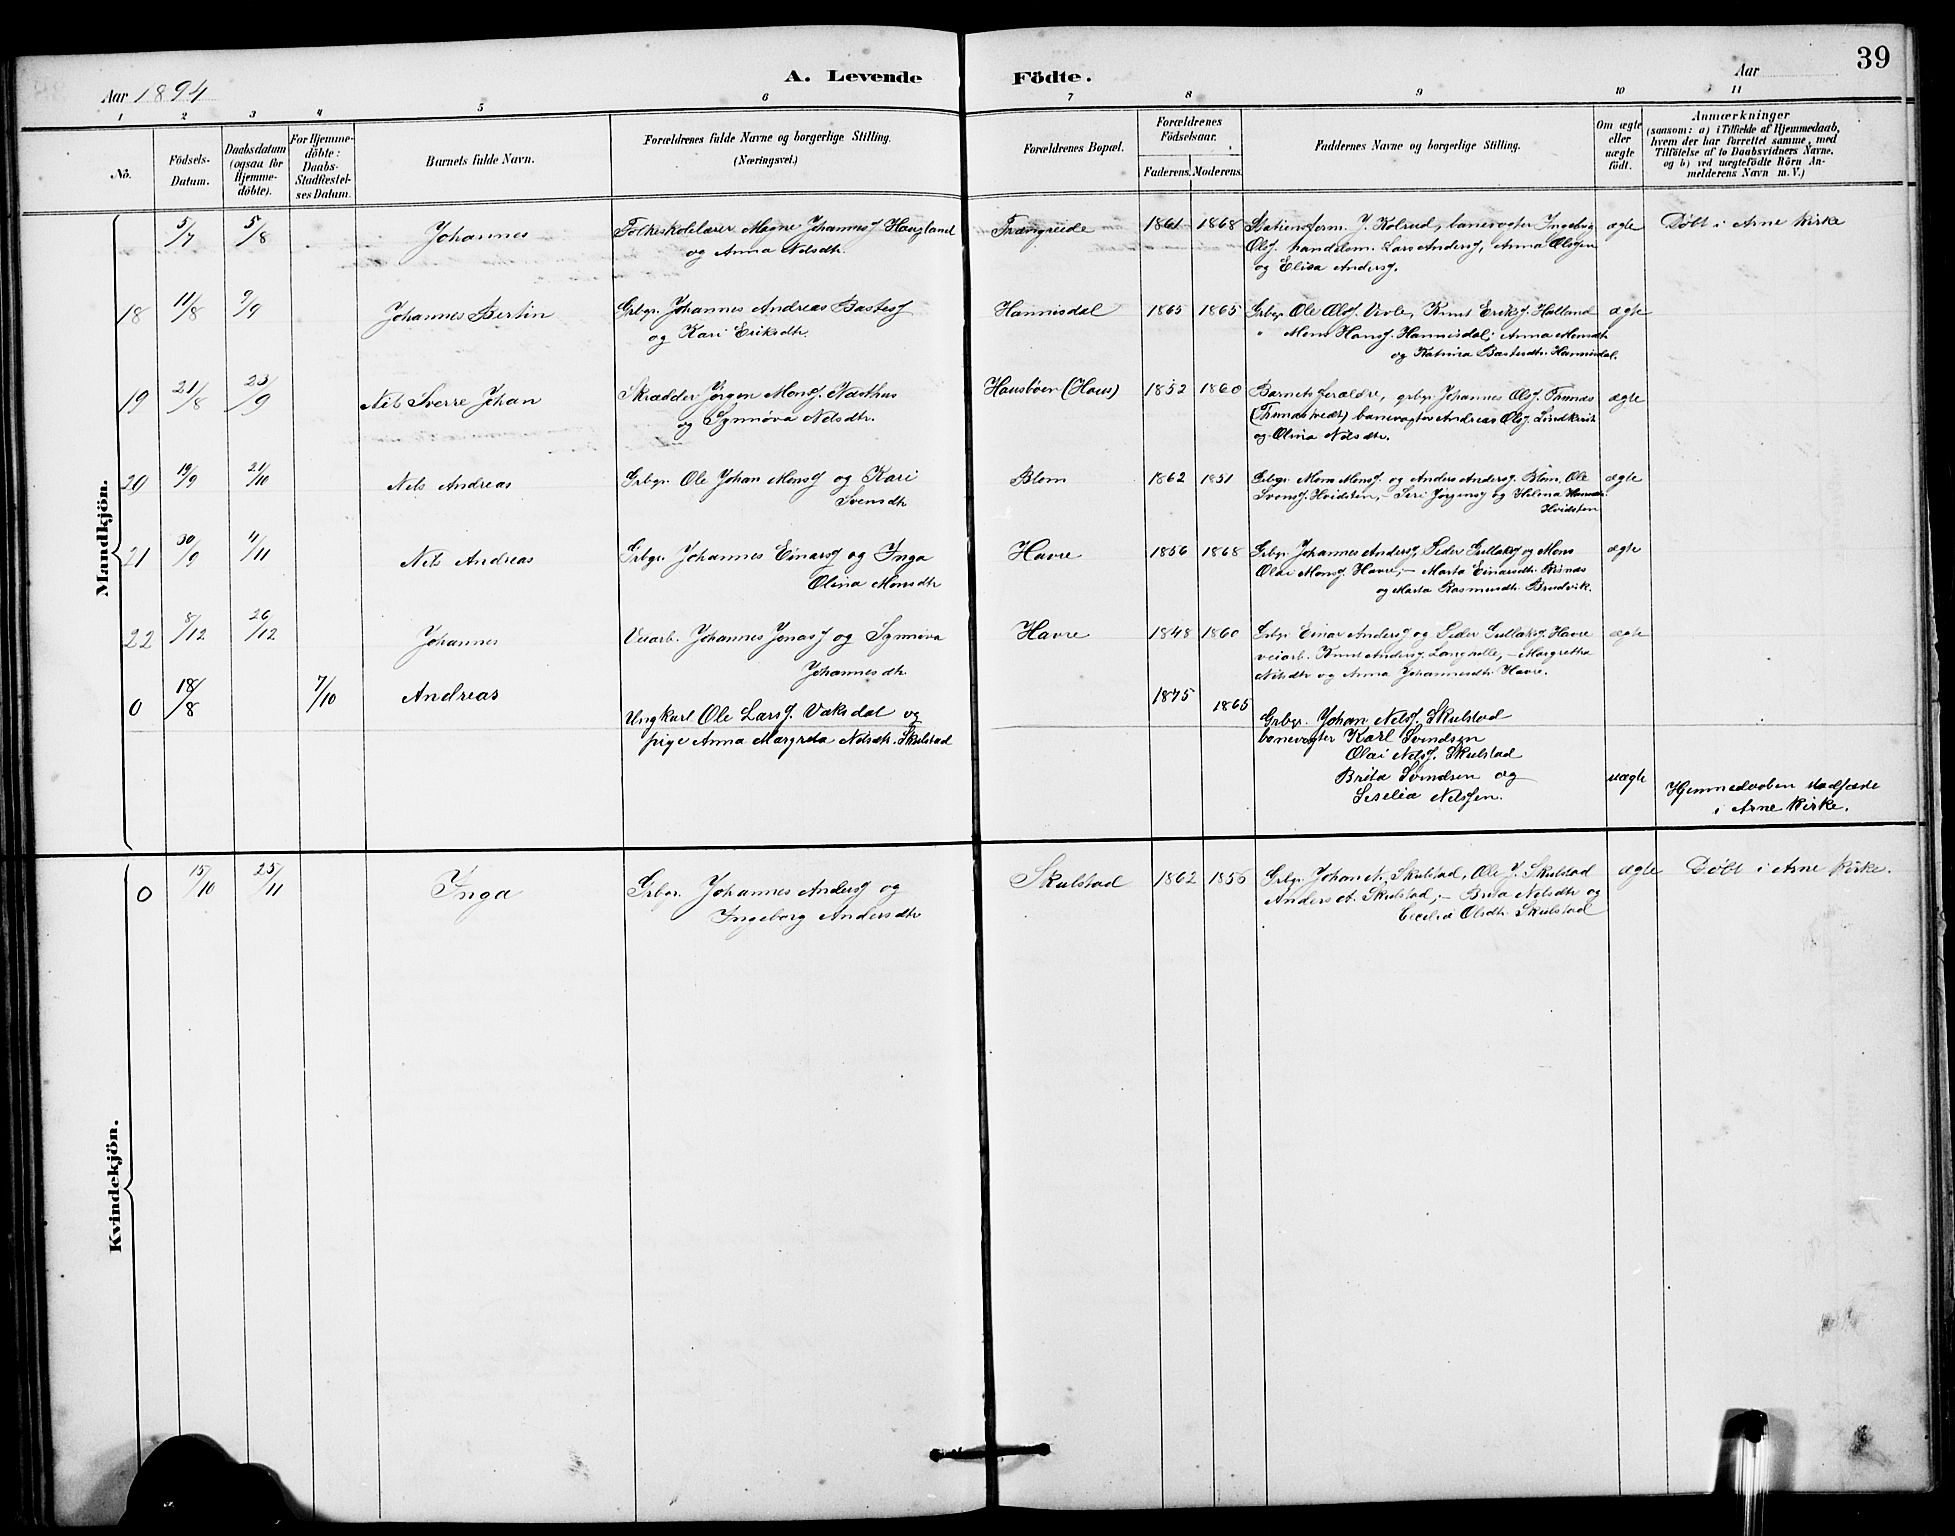 39
A. Levende Födte.
Aar 1894
Aar
1 2 3 4 5 6 7 8 9 10 11
Nö.
Födsels-Datum.
Daabsdatum (ogsaa för Hjemme-döbte).
For Hjemme-döbte: Daabs-Stadfæstel-ses Datum.
Barnets fulde Navn.
Forældrenes fulde Navne og borgerlige Stilling.
(Næringsvei.)
Forældrenes Bopæl.
Forældrenes Födselsaar.
Faderens. Moderens.
Faddernes Navne og borgerlige Stilling.
Om ægte eller uægte födt.
Anmærkninger
(saasom: a) i Tilfælde af Hjemmedaab,
hvem der har forrettet samme, med
Tilföielse af to Daabsvidners Navne.
og b) ved uægtefödte Börn An-
melderens Navn m. V.)
Mandkjön.
5/7 5/8 Johannes
Folkeskolelærer Magne Johannesf Haugland
og Anna Nelsdtr.
Trængreide 1861 1868
Stationsform. J. Kolrud, banevogter Ingebrig
Olsf. handelsm. Lars Andersf, Anna Olsgen
og Elisa Andersf.
ægte
Døbt i Arne Kirke
18 11/8 9/9 Johannes Bertin
Grbgr. Johannes Andreas Bastesf
og Kari Eriksdtr.
Hannisdal 1865 1865
Grbgr. Ole Olsf. Virle, Knut Eriksf. Hølland
" Mons Hansf. Hannisdal; Anna Monsdtr
og Katrina Bastesdtr. Hannisdal.
ægte
19 21/8 23/9 Nels Sverre Johan
Skrædder Jørgen Monsf. Næsthus
og Synnøva Nelsdtr.
Hausbøen (Haus) 1852 1860
Barnets forældre, grbgr. Johannes Olsf. Tunæs
banevogter Andreas Olsf.
og Olina Nelsdtr.
ægte
20 19/9 21/10 Nels Andreas
Grbgr. Ole Johan Monsf og Kari
Svensdtr
Blom 1862 1851
Grbgr. Mons Monsf. og Anders Andersf. Blom, Ole
Svensf. Hvidsten, - Seri Jørgensf og Helena Hansdtr.
Hvidsten
ægte
21 30/9 4/11 Nels Andreas
Grbgr. Johannes Einarsf og Inga
Olina Monsdtr
Havre 1856 1868
Grbgr. Johannes Andersf, Peder Sullaksf og Mons
Olai Monsf. Havre, - Marta Einarsdtr. Risnæs
og Marta Rasmusdtr. Bruvik.
ægte
22 8/12 26/12 Johannes
Veiarb. Johannes Jonasf og Synnøva
Johannesdtr
Havre 1848 1860
Grbgr. Einar Andersf og Peder Sullaksf. Havre
veiarb. Knut Andersf. - Margretha
Nilsdtr og Anna Johannesdtr. Havre.
ægte
0 18/8 7/10 Andreas
Ungkarl Ole Larsf. Vaksdal og
pige Anna Margreta Nelsdtr. Skulstad
1875 1865
Grbgr. Johan Nelsf. Skulstad
banevogter Karl Svendsen
Olai Nelsf. Skulstad
Brita Svendsen og
Seselia Nelsfen.
uægte
Hjemmedaaben stadfæste
i Arne Kirke.
Kvindekjön.
0 15/10 25/11 Inga
Grbgr. Johannes Andersf og
Ingeborg Andersdtr
Skulstad 1862 1856
Grbgr. Johan A. Skulstad, Ole J. Skulstad
Anders A. Skulstad; - Brita Nelsdtr og
Cecilia Olsdtr. Skulstad
ægte
Døbt i Arne Kirke.